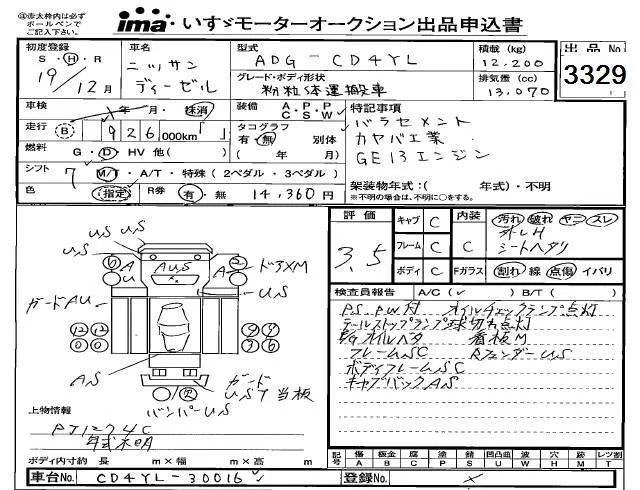 ㊟赤太枠内は必ず
ボールペンで
ご記入下さい。
ima いすゞモーターオークション出品申込書
初度登録 車名 型式 積載(kg) 出品No
S・H・R ニッサン ADG-CD4YL 12,200
19/12月 ディーゼル グレード・ボディ形状 排気量(cc) 3329
粉粒体運搬車 13,070
車検 年・月・抹消 装備 A・P・P C・S・W 特記事項
走行 B 926,000km タコグラフ 有・無 別体 バラセメント
カヤバ工業
燃料 G・D・HV 他( ) ( 年/ 月) GE13エンジン
シフト 7 M/T・A/T・特殊(2ペダル・3ペダル)
色 指定 R券 有・無 14,360円 架装物年式:( 年式)・不明
※不明の場合は、不明に○をする。
評価 キャブ C 内装 汚れ 破れ ヤニ スレ
3.5 フレーム C C シートヘタリ
ボディ C Fガラス 割れ 線 点傷 イバリ
US
US
A AUS A ドアXM
US
ガードAU
AS
ガード
UST当板
バンパーUS
検査員報告 A/C( ✓ ) B/T( )
PS PW付 オイルチェックランプ点灯
テールストップランプ球切れ点灯
E/Gオイルベタ 看板M
フレームSC RフェンダーUS
ボディフレームSC
キャブバックAS
上物情報
PJ1274C
年式不明
記号 傷 板金 腐 塗 錆 凹凸曲 波 穴 跡 レンガ割
A B C P S U W H M T
ボディ内寸 約 長 m×幅 m×高 m
車台No. CD4YL-30016 登録No.